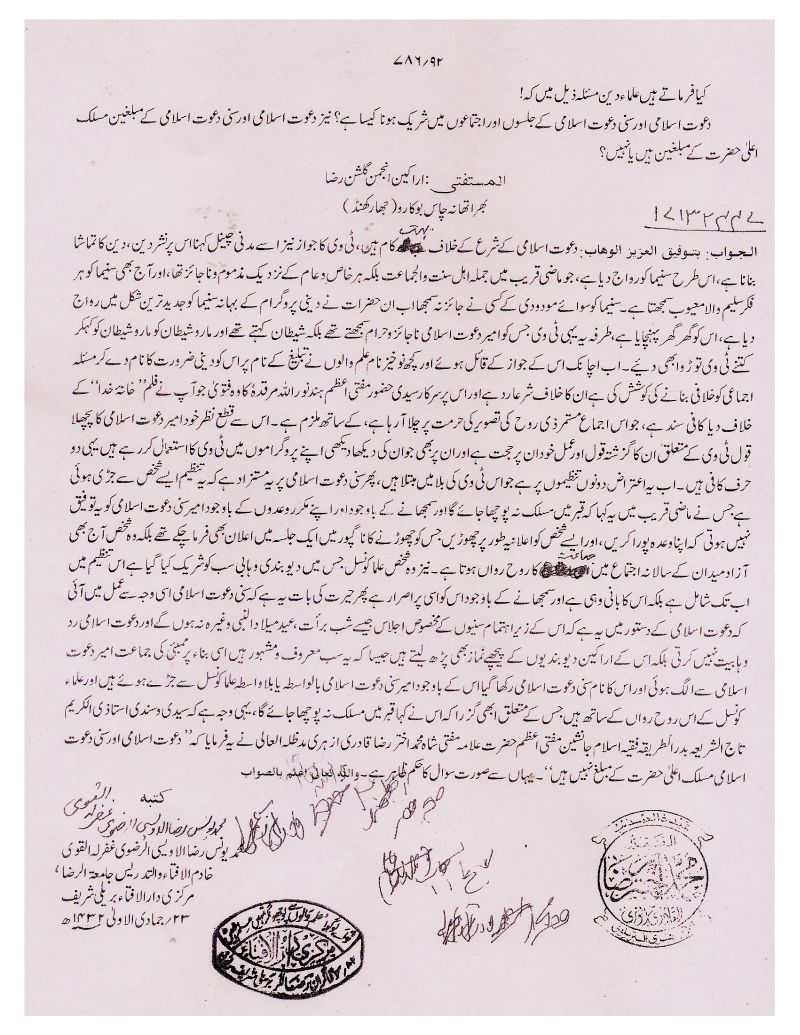 ۷۸۶/۹۲
کیا فرماتے ہیں علماء دین مسئلہ ذیل میں کہ!
دعوت اسلامی اور سنی دعوت اسلامی کے جلسوں اور اجتماعوں میں شریک ہونا کیسا ہے؟ نیز دعوت اسلامی اور سنی دعوت اسلامی کے مبلغین مسلک
اعلیٰ حضرت کے مبلغین ہیں یا نہیں؟
المستفتی: اراکین انجمن گلشن رضا
بھرا تھانہ چاس بوکارو (جھارکھنڈ)
الجواب: بتوفیق العزیز الوهاب: دعوت اسلامی کے شرع کے خلاف بہت کام ہیں، ٹی وی کا جواز نیز اسے مدنی چینل کہنا اس پر نشر دین، دین کا تماشا
بنانا ہے، اس طرح سنیما کو رواج دیا ہے، جو ماضی قریب میں جملہ اہل سنت والجماعت بلکہ ہر خاص و عام کے نزدیک مذموم و ناجائز تھا، اور آج بھی سنیما کو ہر
فکر سلیم والا معیوب سمجھتا ہے۔ سنیما کو سوائے مودودی کے کسی نے جائز نہ سمجھا اب ان حضرات نے دینی پروگرام کے بہانہ سنیما کو جدید ترین شکل میں رواج
دیا ہے، اس کو گھر گھر پہنچایا ہے، طرفہ یہ کہ یہی ٹی وی جس کو امیر دعوت اسلامی ناجائز و حرام سمجھتے تھے بلکہ شیطان کہتے تھے اور مارو شیطان کو مارو شیطان کو کہکر
کتنے ٹی وی توڑوا بھی دیئے۔ اب اچانک اس کے جواز کے قائل ہوئے اور کچھ نوخیز نام علم والوں نے تبلیغ کے نام پر اس کو دینی ضرورت کا نام دے کر مسئلہ
اجماعی کو خلافی بنانے کی کوشش کی ہے ان کا خلاف شرعا رد ہے اور اس پر سرکار سیدی حضور مفتی اعظم ہند نور اللہ مرقدہٗ کا وہ فتویٰ جو آپ نے فلم ”خانۂ خدا“ کے
خلاف دیا کافی سند ہے، جو اس اجماع مستمر ذی روح کی تصویر کی حرمت پر چلا آرہا ہے، کے ساتھ ملزم ہے۔ اس سے قطع نظر خود امیر دعوت اسلامی کا پچھلا
قول ٹی وی کے متعلق ان کا گزشتہ قول اور عمل خود ان پر حجت ہے اور ان پر بھی جو ان کی دیکھا دیکھی اپنے پروگراموں میں ٹی وی کا استعمال کر رہے ہیں یہی دو
حرف کافی ہیں۔ اب یہ اعتراض دونوں تنظیموں پر ہے جو اس ٹی وی کی بلا میں مبتلا ہیں، پھر سنی دعوت اسلامی پر یہ مستزاد ہے کہ یہ تنظیم ایسے شخص سے جڑی ہوئی
ہے جس نے ماضی قریب میں یہ کہا کہ قبر میں مسلک نہ پوچھا جائے گا اور سمجھانے کے باوجود، اور اپنے مکرر وعدوں کے باوجود امیر سنی دعوت اسلامی کو یہ توفیق
نہیں ہوتی کہ اپنا وعدہ پورا کریں، اور ایسے شخص کو اعلانیہ طور پر چھوڑیں جس کو چھوڑنے کا ناگپور میں ایک جلسہ میں اعلان بھی فرما چکے تھے بلکہ وہ شخص آج بھی
آزاد میدان کے سالانہ اجتماع میں جماعت کا روح رواں ہوتا ہے۔ نیز وہ شخص علما کونسل جس میں دیوبندی وہابی سب کو شریک کیا گیا ہے اس تنظیم میں
اب تک شامل ہے بلکہ اس کا بانی وہی ہے اور سمجھانے کے باوجود اس کو اسی پر اصرار ہے پھر حیرت کی بات یہ ہے کہ سنی دعوت اسلامی اسی وجہ سے عمل میں آئی
کہ دعوت اسلامی کے دستور میں یہ ہے کہ اس کے زیر اہتمام سنیوں کے مخصوص اجلاس جیسے شب برأت، عید میلاد النبی وغیرہ نہ ہوں گے اور دعوت اسلامی رد
وہابیت نہیں کرتی بلکہ اس کے اراکین دیوبندیوں کے پیچھے نماز بھی پڑھ لیتے ہیں جیسا کہ یہ سب معروف و مشہور ہیں اسی بناء پر ممبئی کی جماعت امیر دعوت
اسلامی سے الگ ہوئی اور اس کا نام سنی دعوت اسلامی رکھا گیا اس کے باوجود امیر سنی دعوت اسلامی بالواسطہ یا بلا واسطہ علما کونسل سے جڑے ہوئے ہیں اور علماء
کونسل کے اس روح رواں کے ساتھ ہیں جس کے متعلق ابھی گزرا کہ اس نے کہا قبر میں مسلک نہ پوچھا جائے گا، یہی وجہ ہے کہ سیدی و سندی استاذی الکریم
تاج الشریعہ بدر الطریقہ فقیہ اسلام جانشین مفتی اعظم حضرت علامہ مفتی شاہ محمد اختر رضا قادری ازہری مدظلہ العالی نے یہ فرمایا کہ ”دعوت اسلامی اور سنی دعوت
اسلامی مسلک اعلیٰ حضرت کے مبلغ نہیں ہیں“۔ یہاں سے صورت سوال کا حکم ظاہر ہے۔ واللہ تعالیٰ اعلم بالصواب
کتبہ
محمد یونس رضا الاویسی الرضوی غفرلہ القوی
محمد یونس رضا الاویسی الرضوی غفرلہ القوی
خادم الافتاء والتدریس جامعۃ الرضا،
مرکزی دار الافتاء بریلی شریف
۲۳/ جمادی الاولیٰ ۱۴۳۲ھ
مرکزی دار الافتاء